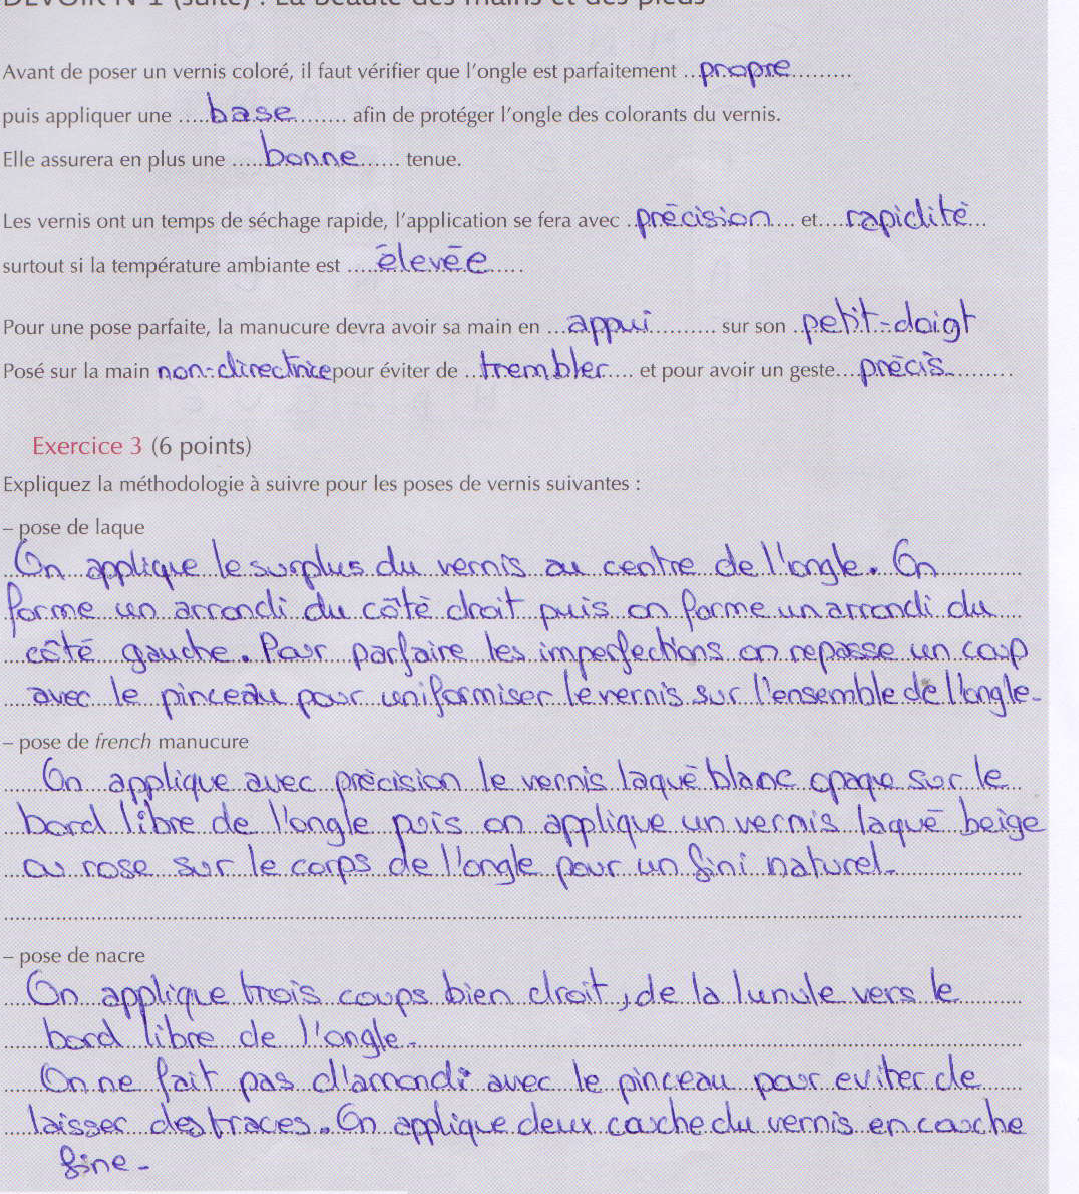 DEVOIR N°1 (suite) : La beauté des mains et des pieds
Avant de poser un vernis coloré, il faut vérifier que l'ongle est parfaitement ..propre..........
puis appliquer une .....base........ afin de protéger l'ongle des colorants du vernis.
Elle assurera en plus une .....bonne...... tenue.
Les vernis ont un temps de séchage rapide, l'application se fera avec ..précision.... et....rapidité...
surtout si la température ambiante est .....élevée......
Pour une pose parfaite, la manucure devra avoir sa main en ...appui........... sur son ..petit-doigt
Posé sur la main non-directrice pour éviter de ..trembler.... et pour avoir un geste...précis...........
Exercice 3 (6 points)
Expliquez la méthodologie à suivre pour les poses de vernis suivantes :
– pose de laque
On applique le surplus du vernis au centre de l'ongle. On
forme un arrondi du côté droit puis on forme un arrondi du
côté gauche. Pour parfaire les imperfections on repasse un coup
avec le pinceau pour uniformiser le vernis sur l'ensemble de l'ongle.
– pose de french manucure
On applique avec précision le vernis laqué blanc opaque sur le
bord libre de l'ongle puis on applique un vernis laqué beige
ou rose sur le corps de l'ongle pour un fini naturel.
– pose de nacre
On applique trois coups bien droit, de la lunule vers le
bord libre de l'ongle.
On ne fait pas d'arrondi avec le pinceau pour eviter de
laisser des traces. On applique deux couche du vernis en couche
fine.